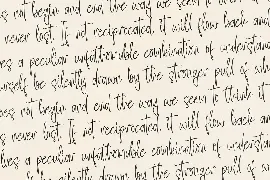 not begin and end the way we seem it
never lost. If not reciprocated, it will flow back and
a peculiar unfathomable combination of understan
urself be silently drawn by the stronger pull of wh
oes not begin and end the way we seem to think it
s never lost. If not reciprocated, it will flow back an
lves a peculiar unfathomable combination of understan
be silently drawn by the stronger pull of w